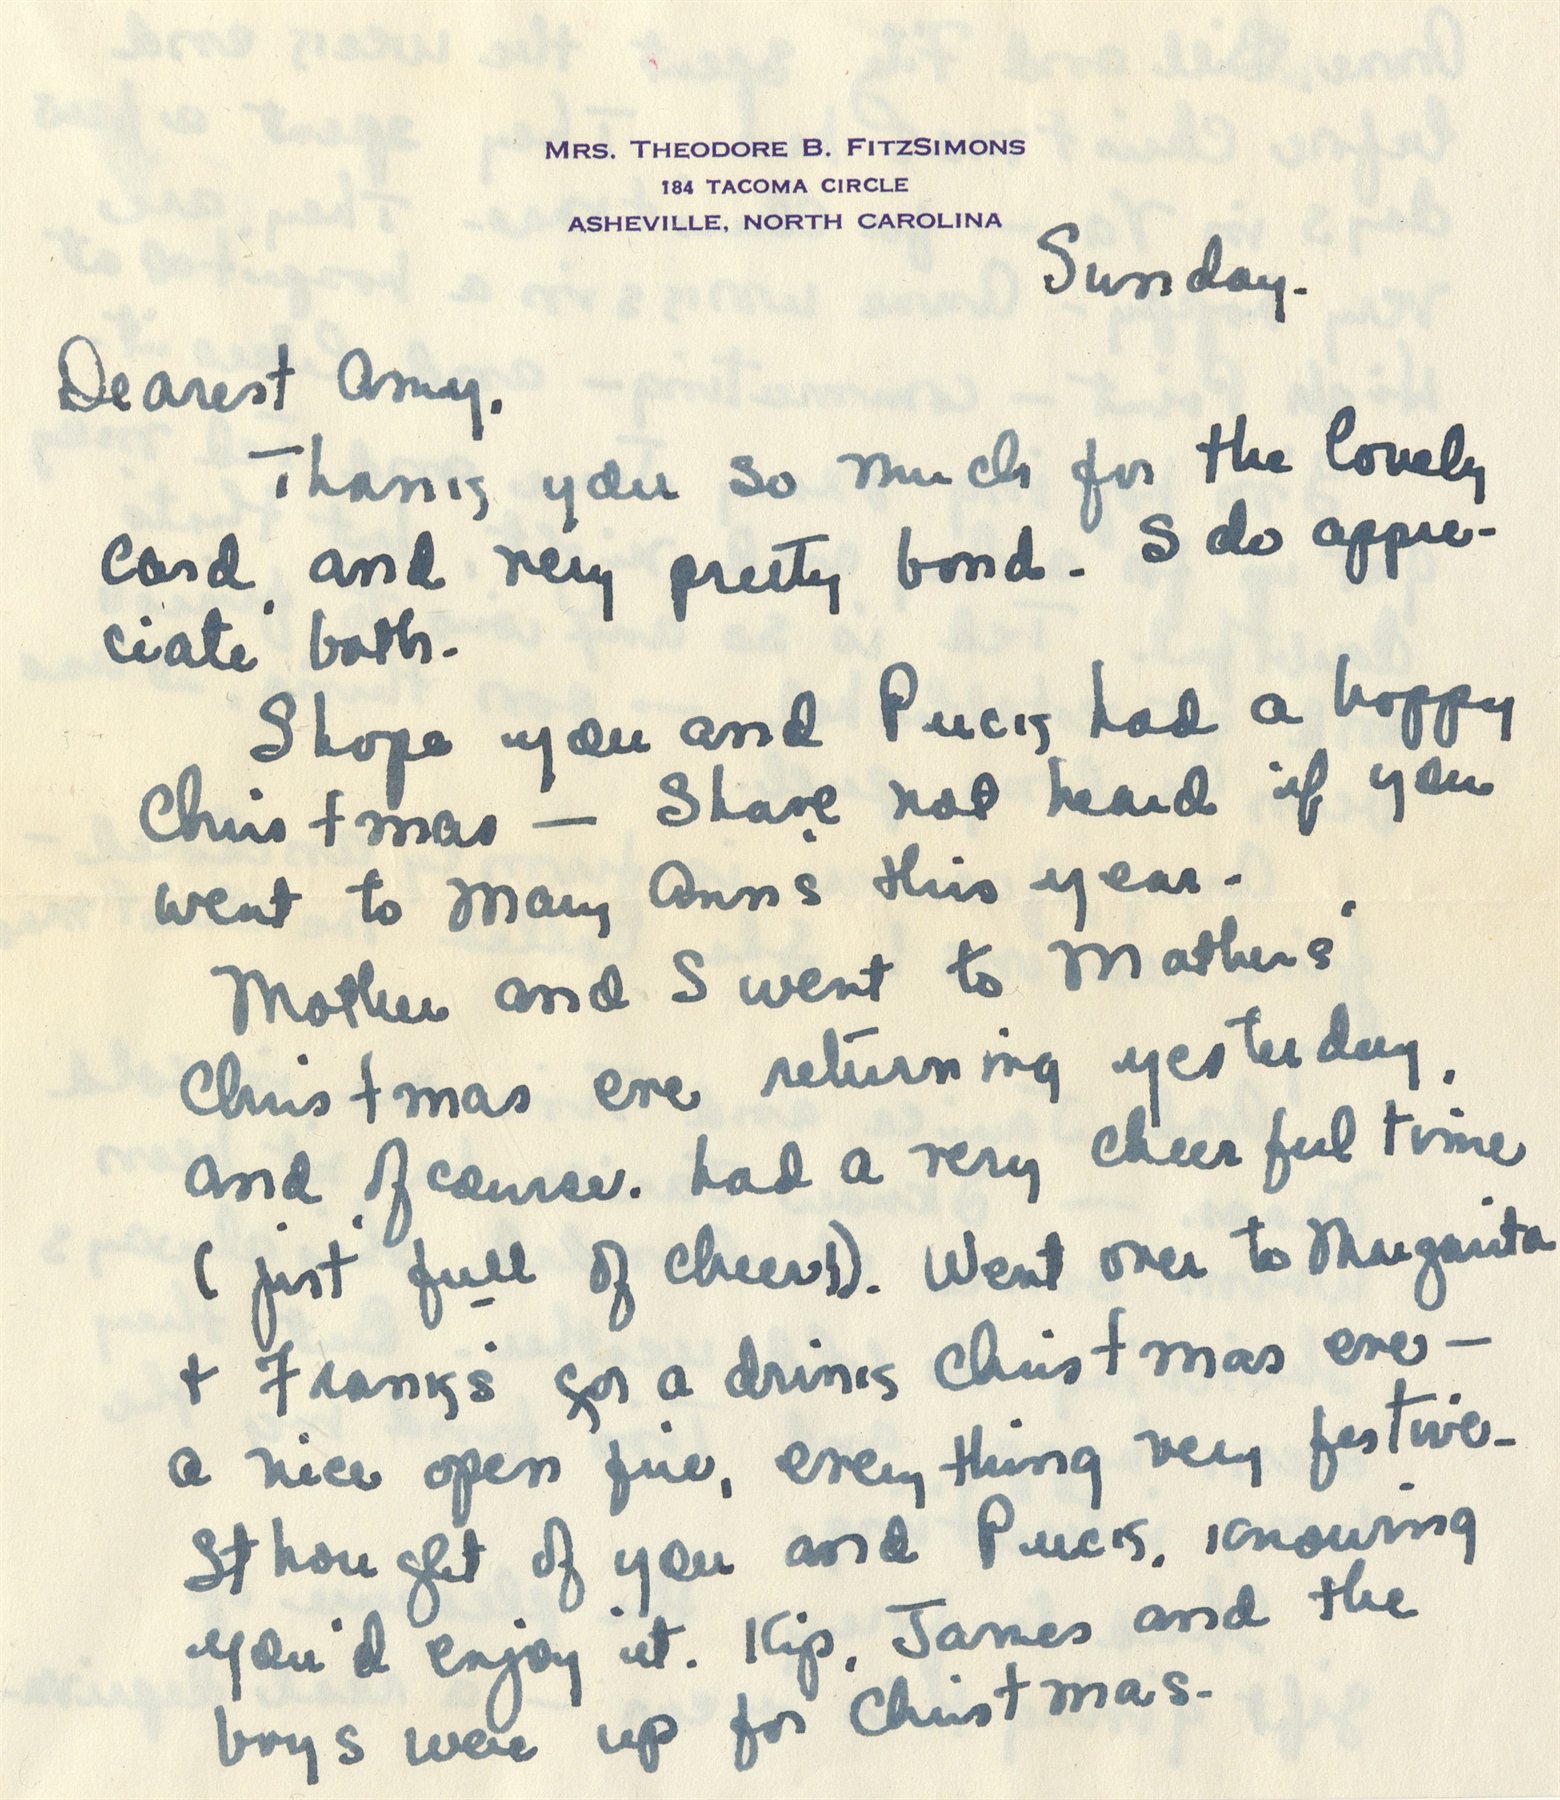 MRS. THEODORE B. FITZSIMONS
184 TACOMA CIRCLE
ASHEVILLE, NORTH CAROLINA
Sunday.
Dearest Amy,
Thank you so much for the lovely
card, and very pretty bond. I do appre-
ciate both.
I hope you and Puck had a happy
Christmas — I have not heard if you
went to Mary Ann's this year.
Mother and I went to Mathers'
Christmas eve returning yesterday,
and, of course, had a very cheerful time
(just full of cheer!). Went over to Margarita
+ Frank's for a drink Christmas eve —
a nice open fire, everything very festive.
I thought of you and Puck, knowing
you'd enjoy it. Kip, James and the
boys were up for Christmas.